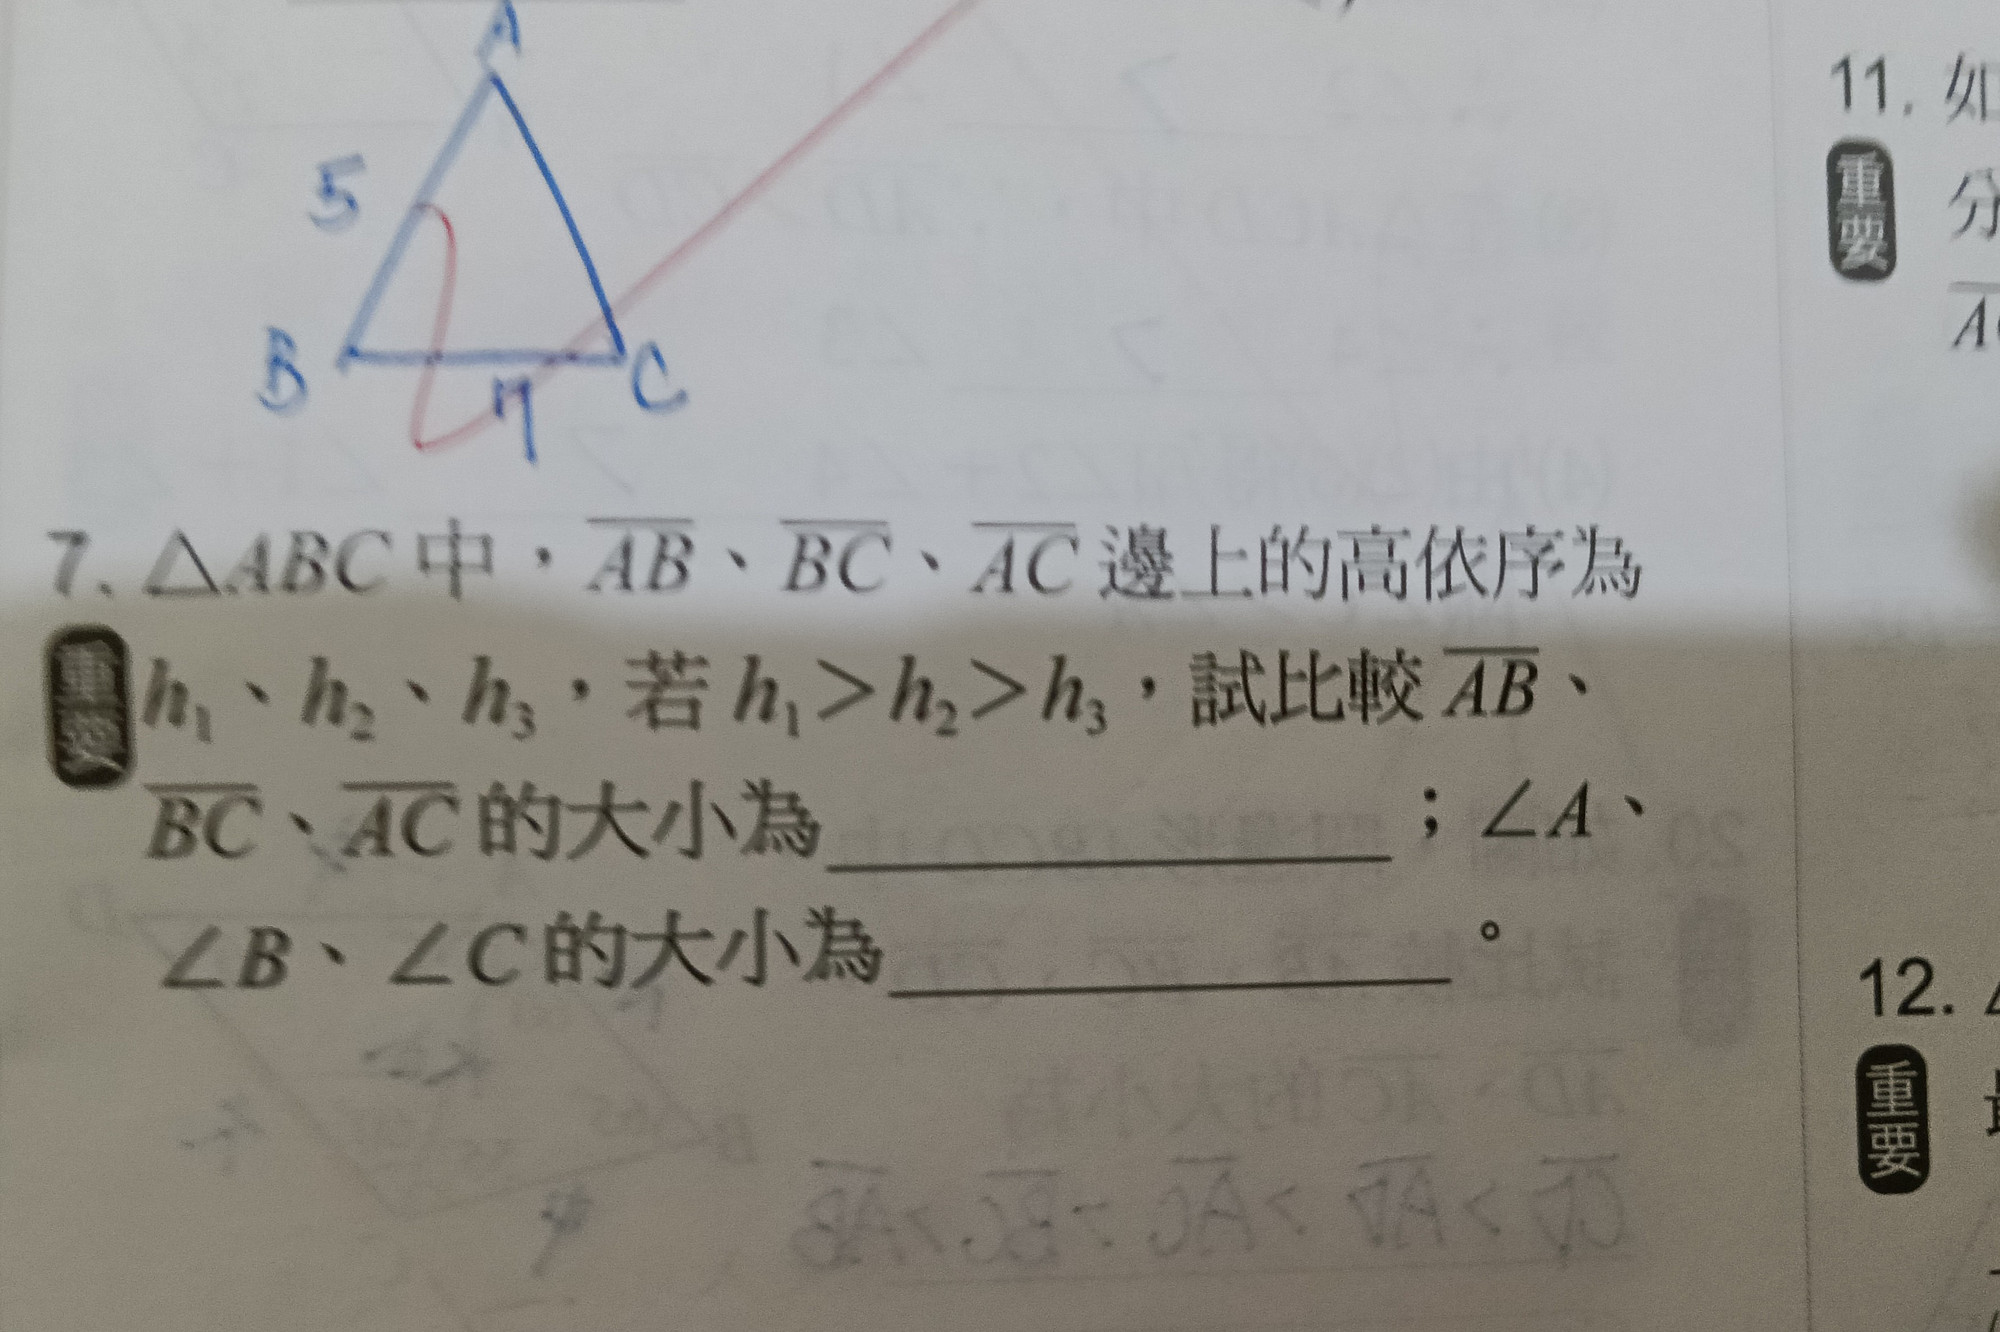 A
5
B
7
C
7. △ABC中，AB、BC、AC邊上的高依序為
重要
h₁、h₂、h₃，若h₁>h₂>h₃，試比較AB、
BC、AC的大小為__________；∠A、
∠B、∠C的大小為__________。
11. 如
重要
分
12.
重要